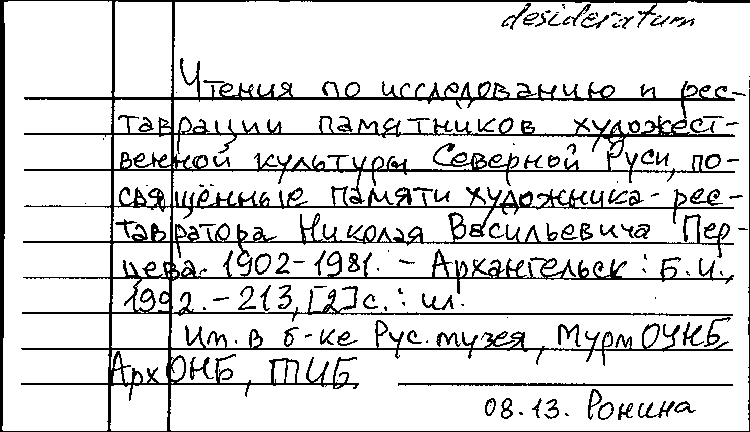 desideratum
Чтения по исследованию и рес-
таврации памятников художест-
венной культуры Северной Руси, по-
священные памяти художника-рес-
тавратора Николая Васильевича Пер-
цева. 1902-1981. - Архангельск : Б.и.,
1992. - 213, [2] с. : ил.
Им. в б-ке Рус. музея, МурмОУНБ,
АрхОНБ, ГПИБ.
08.13. Ронина